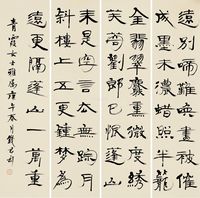 遠別啼難喚書被催
成墨未濃蠟照半籠
金翡翠麝熏微度繡
芙蓉劉郎已恨蓬山
来是空言去無踪月
斜樓上五更鐘夢為
遠更隔蓬山一萬重
青霞女士雅屬庚午春月錢君匋